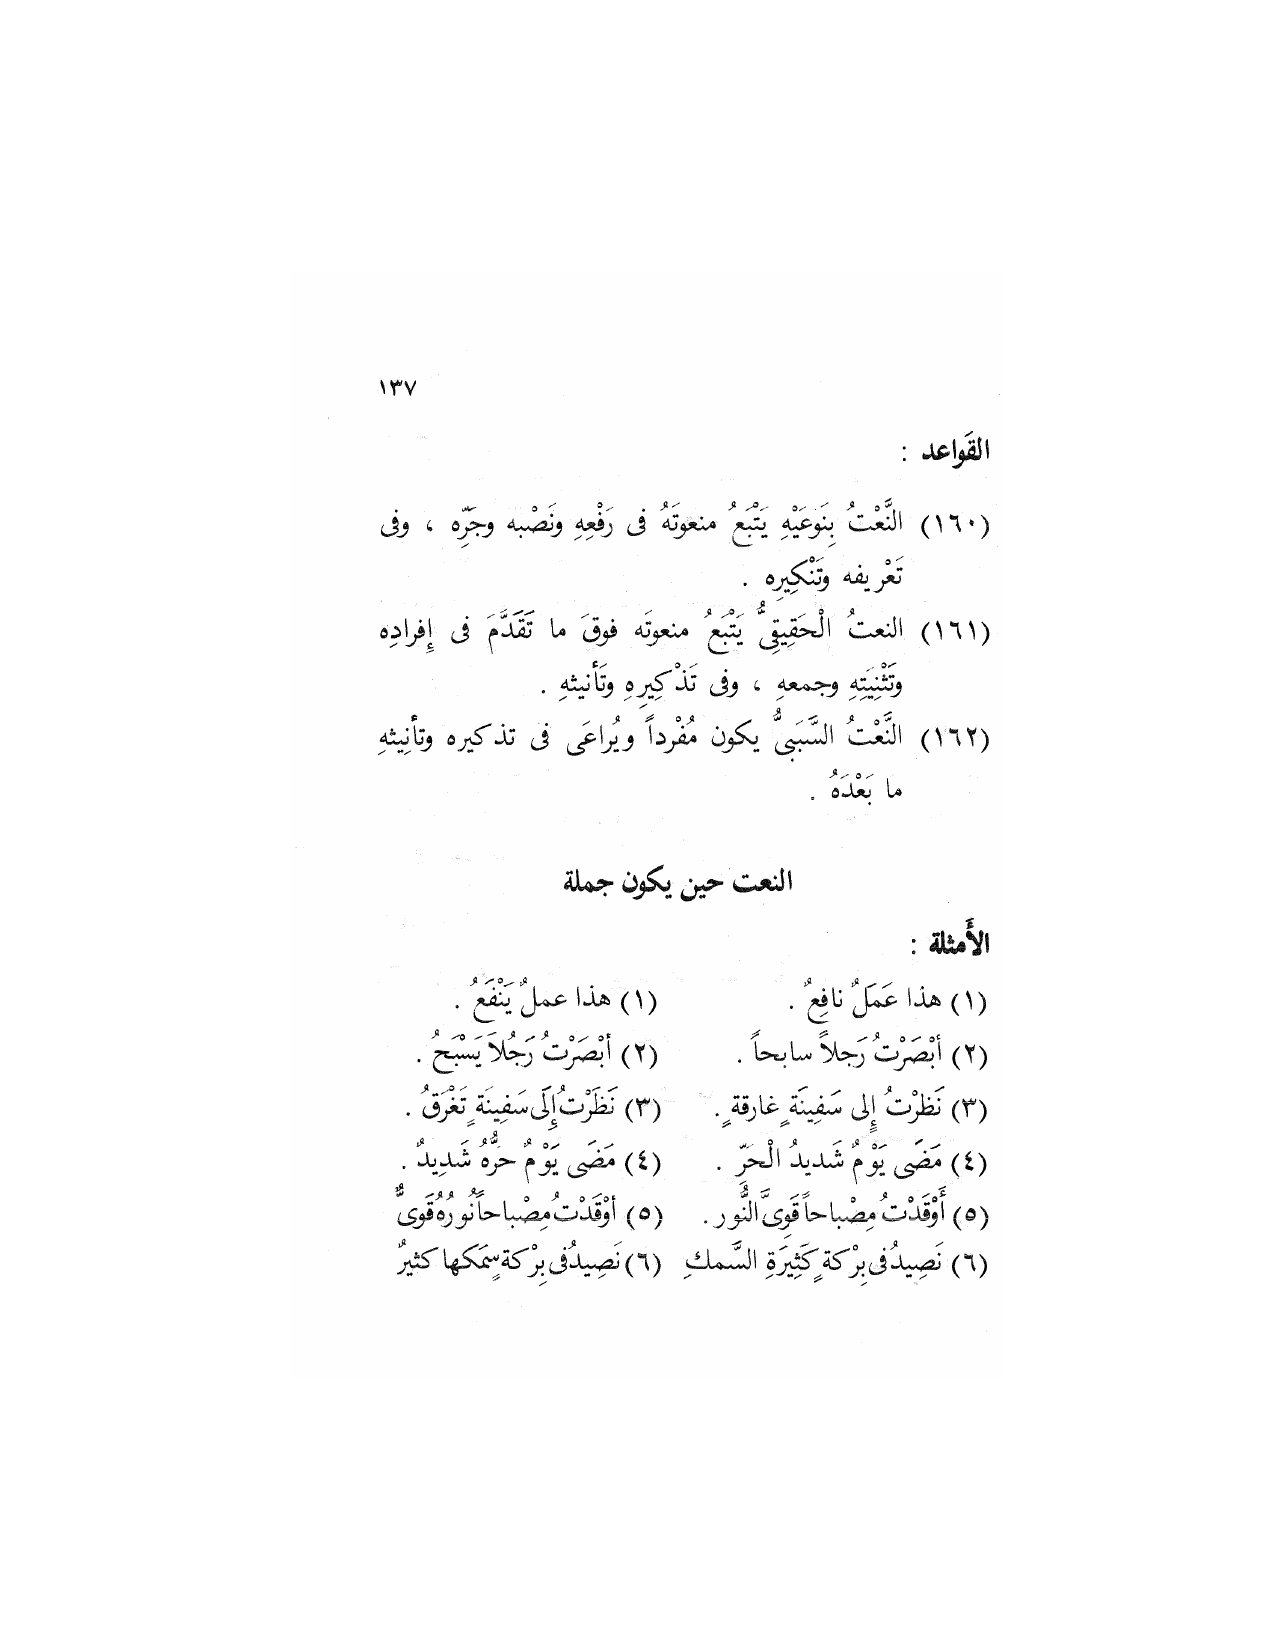 ١٣٧
القَواعد :
(١٦٠) النَّعْتُ بِنَوعَيْهِ يَتْبَعُ منعوتَهُ فى رَفْعِهِ ونَصْبه وجَرِّه ، وفى
تَعْريفه وتَنْكِيرِه .
(١٦١) النعتُ الْحَقِيقِىُّ يَتْبَعُ منعوتَه فوقَ ما تَقَدَّمَ فى إِفرادِه
وتَثْنِيَتِهِ وجمعهِ ، وفى تَذْكِيرِهِ وتَأنيثهِ .
(١٦٢) النَّعْتُ السَّبَبىُّ يكون مُفْرداً ويُراعَى فى تذكيره وتأنِيثهِ
ما بَعْدَهُ .
النعت حين يكون جملة
الأَمثلة :
(١) هذا عَمَلٌ نافِعٌ . (١) هذا عملٌ يَنْفَعُ .
(٢) أبْصَرْتُ رَجلاً سابحاً . (٢) أبْصَرْتُ رَجُلاً يَسْبَحُ .
(٣) نَظرْتُ إِلى سَفِينَةٍ غارقةٍ . (٣) نَظَرْتُ إِلَى سَفِينَةٍ تَغْرَقُ .
(٤) مَضَى يَوْمٌ شَديدُ الْحَرِّ . (٤) مَضَى يَوْمٌ حرُّهُ شَدِيدٌ .
(٥) أَوْقَدْتُ مِصْباحاً قَوِىَّ النُّور . (٥) أوْقَدْتُ مِصْباحاً نُورُهُ قَوِىٌّ
(٦) نَصِيدُ فى بِرْكةٍ كَثِيرَةِ السَّمكِ (٦) نَصِيدُ فى بِرْكةٍ سمَكها كثيرٌ